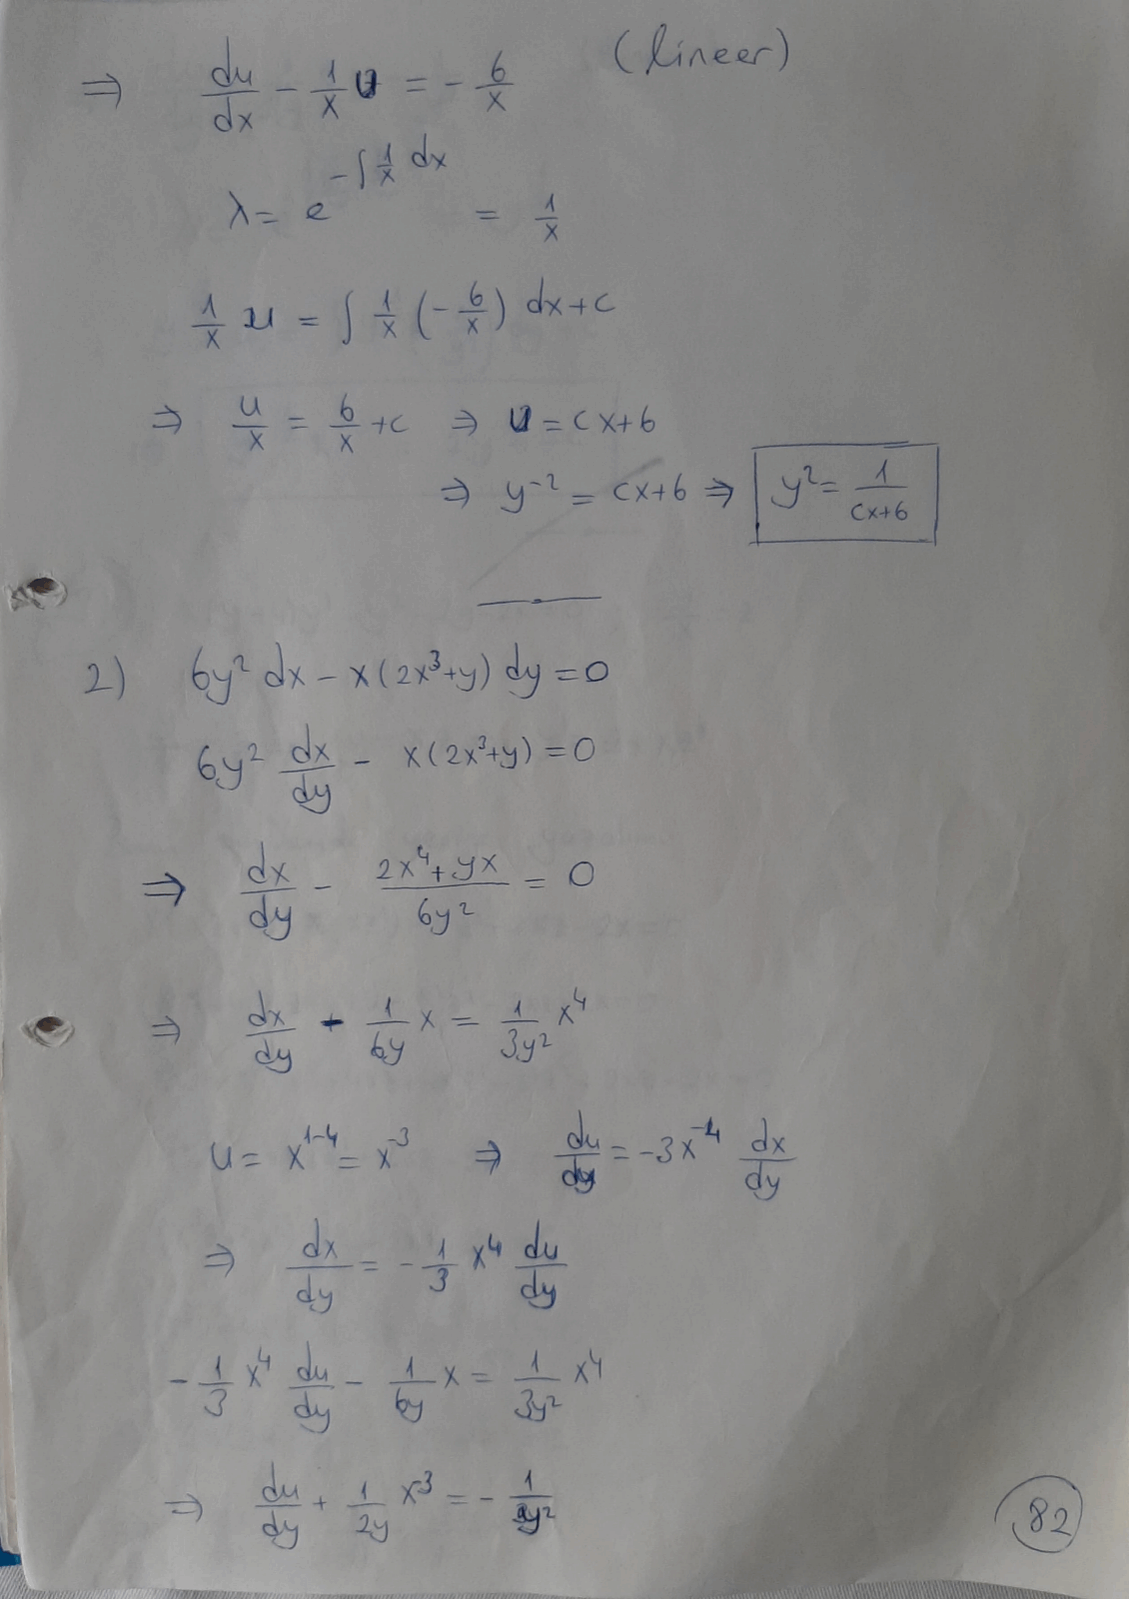 ⇒ du/dx - 1/x u = - 6/x (lineer)
λ = e^(-∫ 1/x dx) = 1/x
1/x u = ∫ 1/x (- 6/x) dx + c
⇒ u/x = 6/x + c ⇒ u = cx+6
⇒ y⁻² = cx+6 ⇒ y² = 1/(cx+6)
2) 6y² dx - x(2x³+y) dy = 0
6y² dx/dy - x(2x³+y) = 0
⇒ dx/dy - (2x⁴+yx)/(6y²) = 0
⇒ dx/dy - 1/(6y) x = 1/(3y²) x⁴
u = x¹⁻⁴ = x⁻³ ⇒ du/dy = -3x⁻⁴ dx/dy
⇒ dx/dy = - 1/3 x⁴ du/dy
- 1/3 x⁴ du/dy - 1/(6y) x = 1/(3y²) x⁴
⇒ du/dy + 1/(2y) x⁻³ = - 1/y²
82